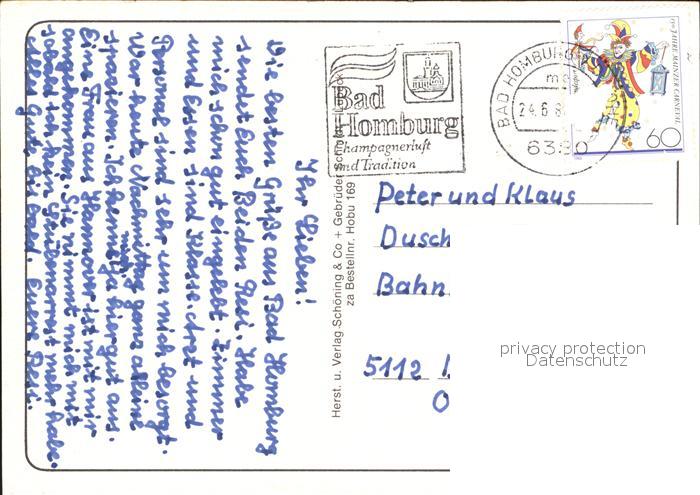 Ihr Lieben!
Die besten Grüße aus Bad Homburg
sendet Euch Beiden Resi. Habe
mich schon gut eingelebt. Zimmer
und Essen sind Klasse. Arzt und
Personal sind sehr um mich besorgt.
War heute Nachmittag ganz alleine
spazieren. Ich kenne mich hier gut aus.
Eine Frau aus Hannover ist mit mir
angekommen. Sie nimmt mich mit
sobald ich kein mehr habe.
alles gute bis bald. Eure Resi.
Bad
Homburg
Champagnerluft
und Tradition
BAD HOMBURG
24.6.8
6380
650 JAHRE MAINZER CARNEVAL
60
Herst. u. Verlag Schöning & Co + Gebrüder Schmidt, Lübeck
za Bestellnr. Hobu 169
Peter und Klaus
Dusch
Bahn
5112
privacy protection
Datenschutz